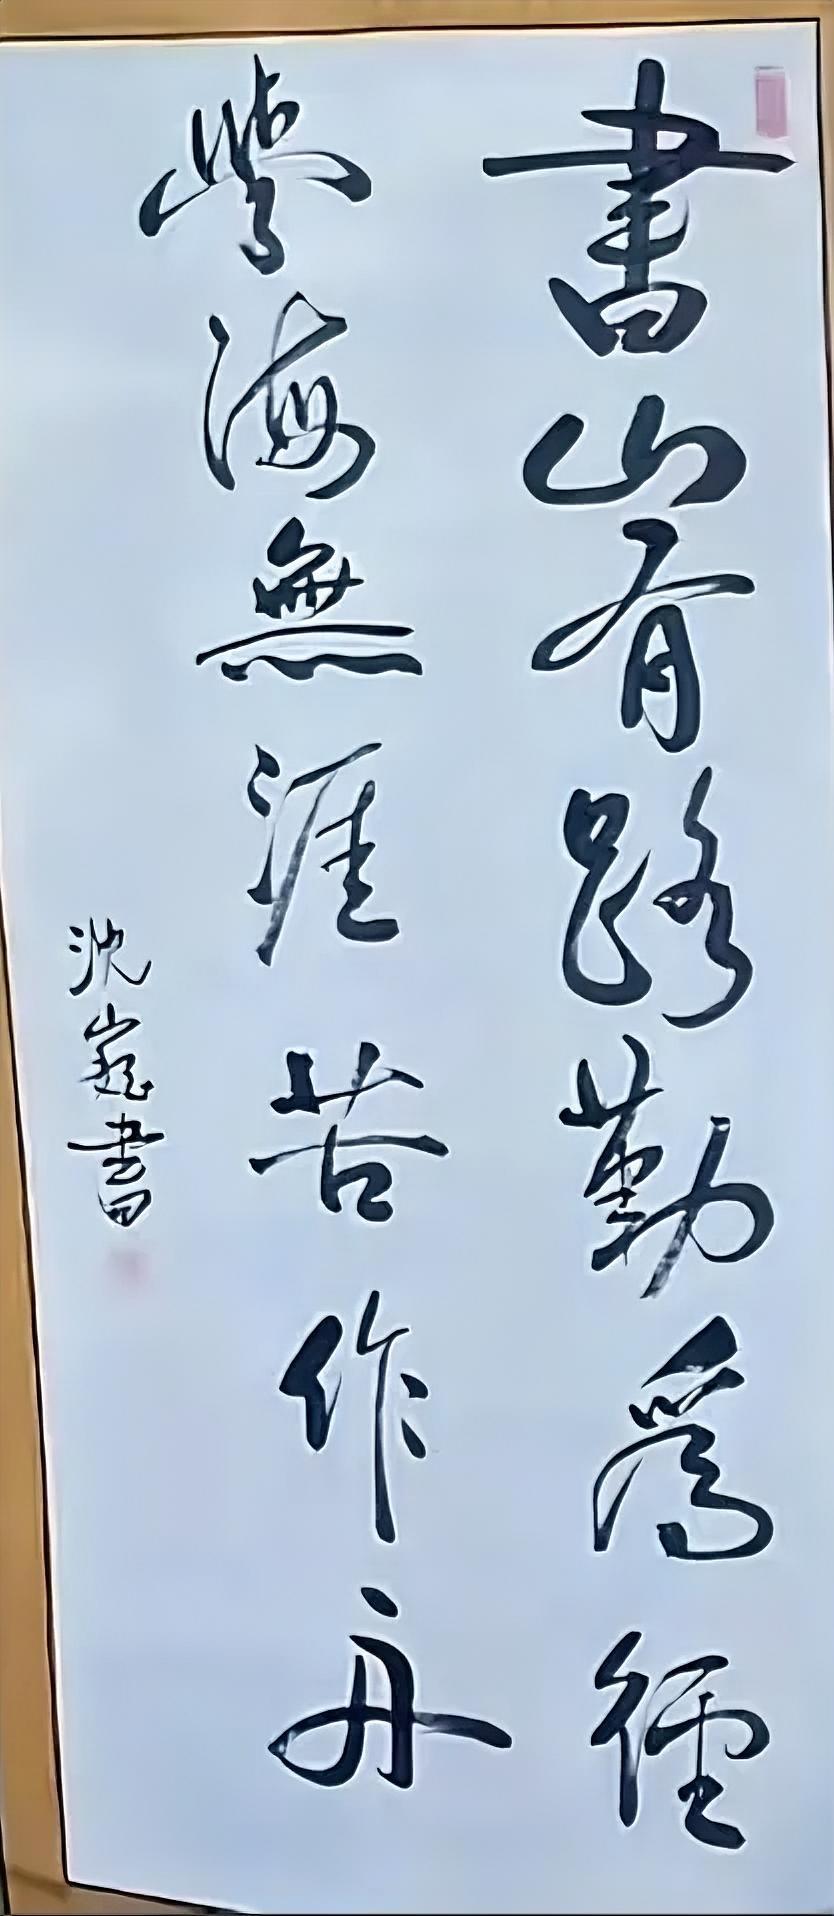 書山有路勤為徑
學海無涯苦作舟
沈巍書